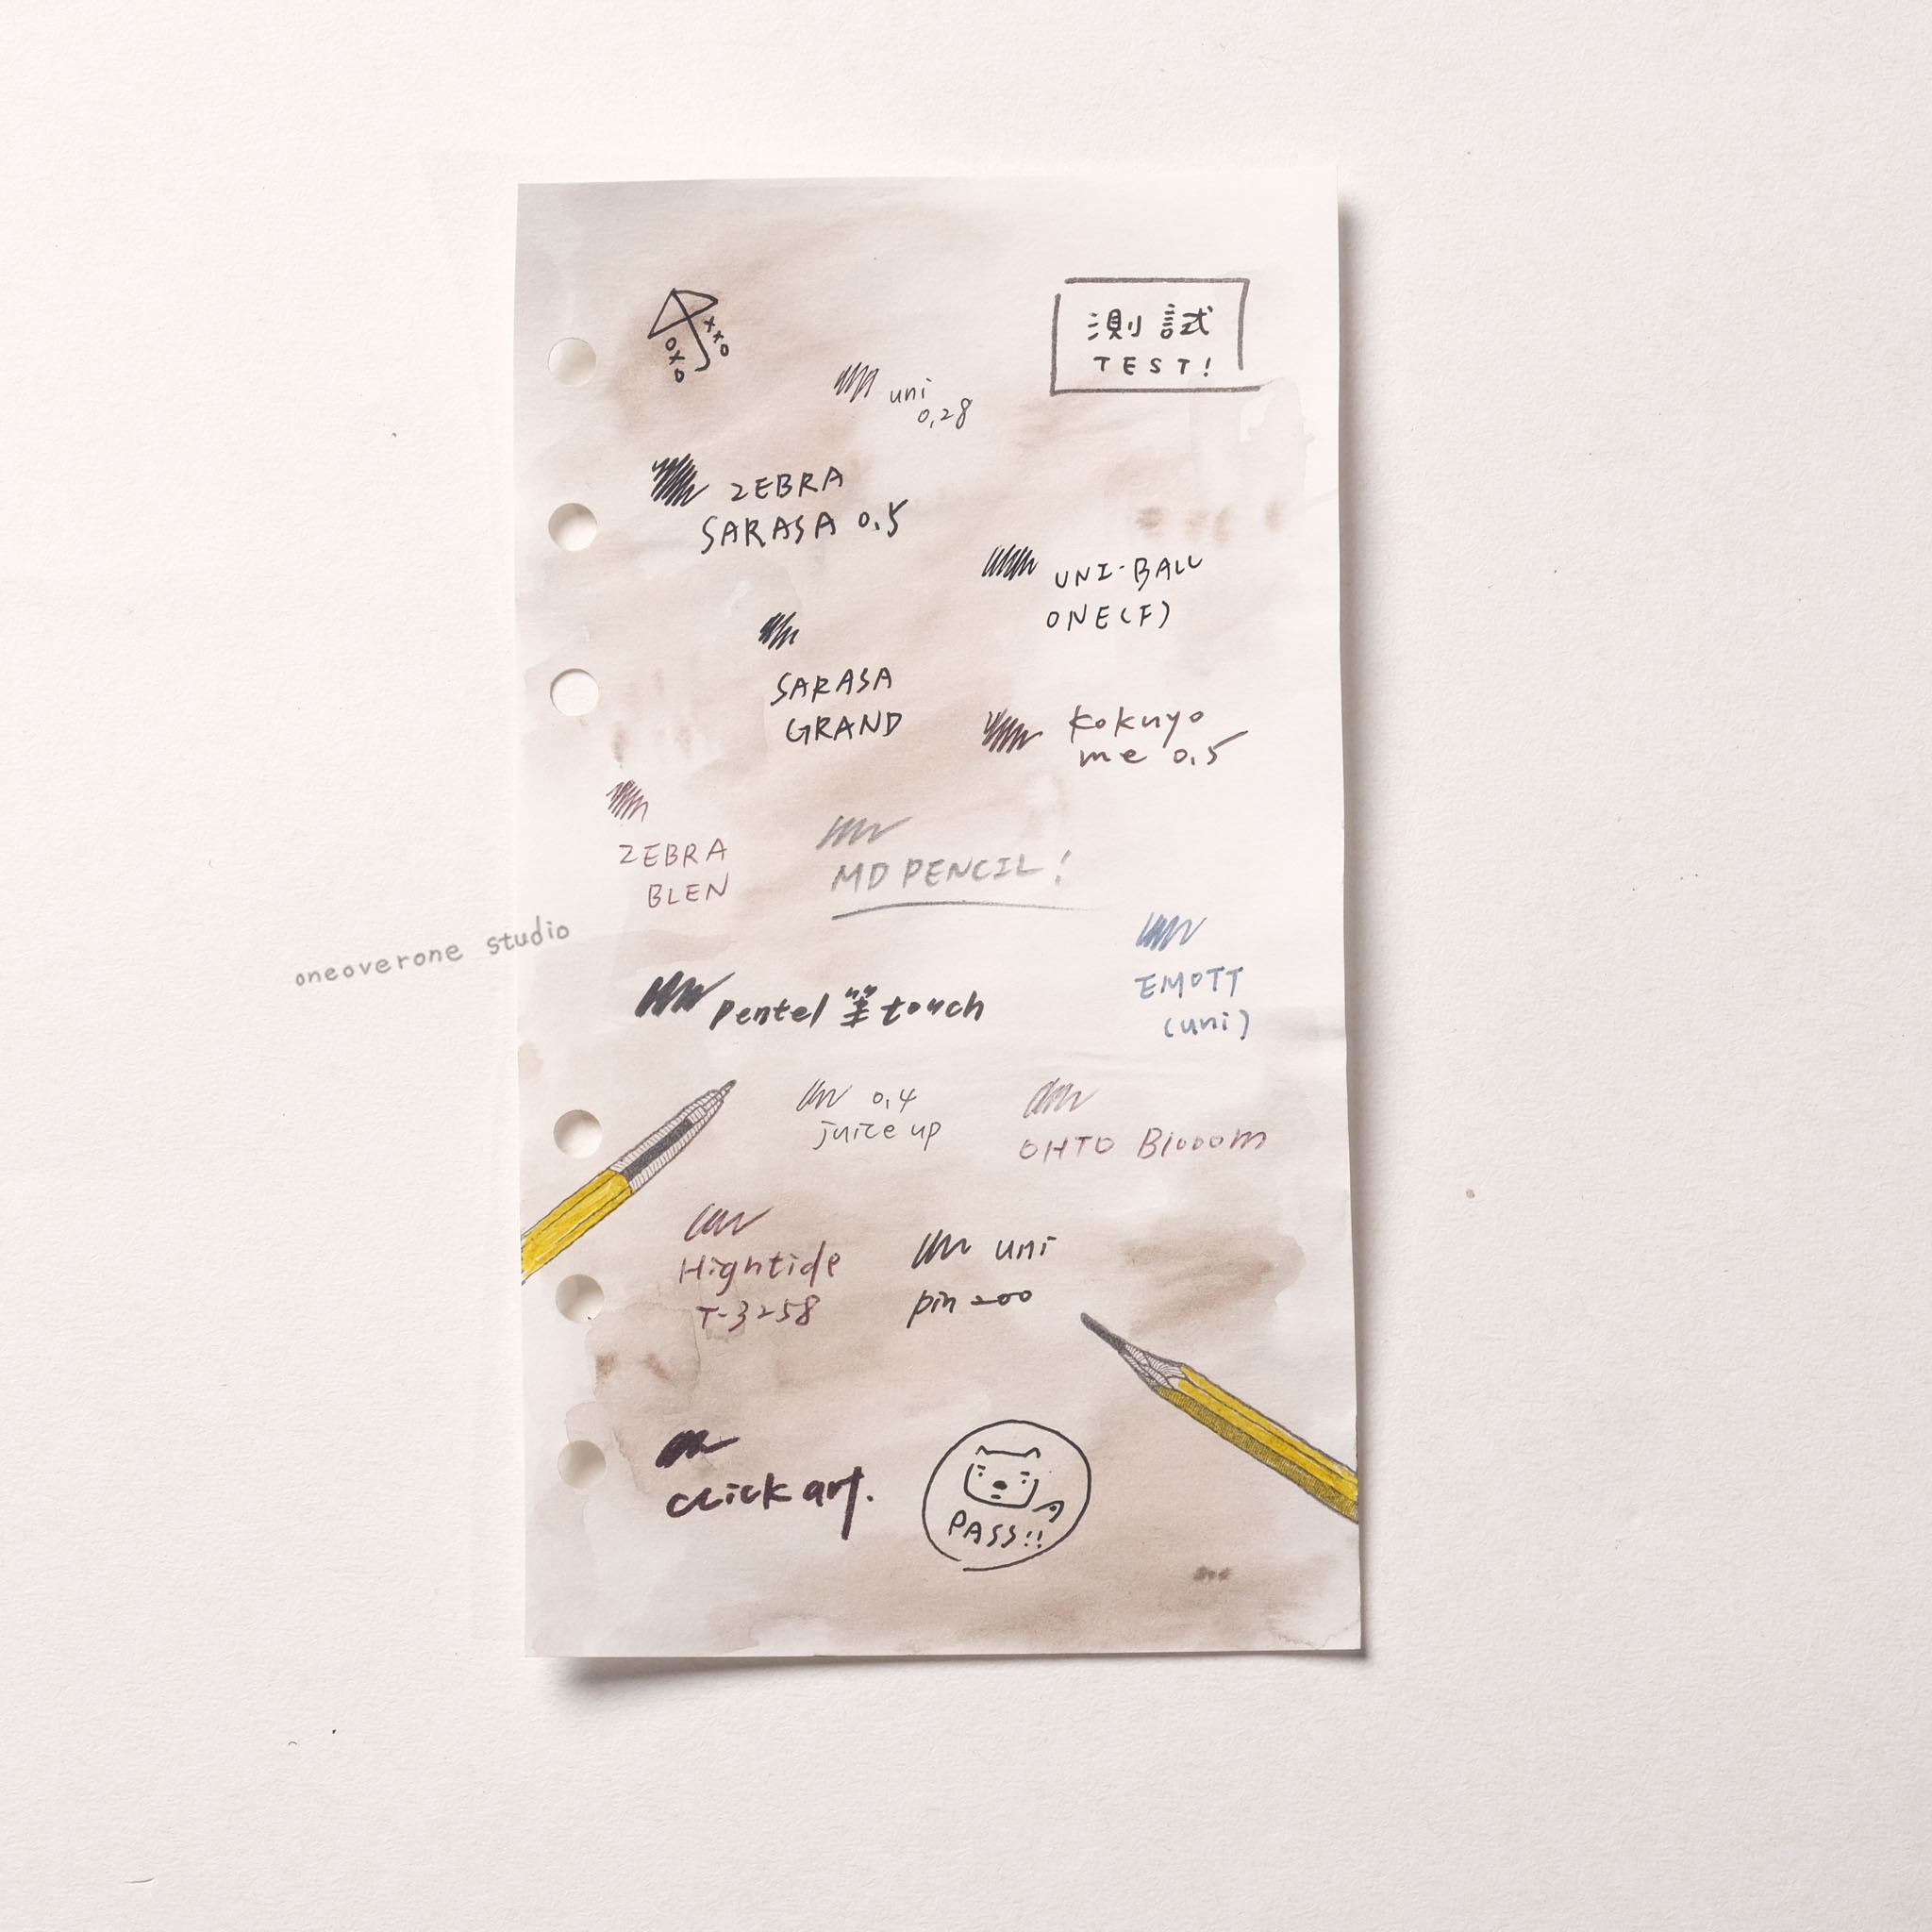 測試
TEST!
oxo
xxo
uni
0.28
ZEBRA
SARASA 0.5
UNI-BALL
ONE(F)
SARASA
GRAND
Kokuyo
me 0.5
ZEBRA
BLEN
MD PENCIL!
EMOTT
(uni)
oneoverone studio
Pentel 筆touch
0.4
juice up
OHTO Blooom
Hightide
T-3258
uni
pin 200
Click art.
PASS!!